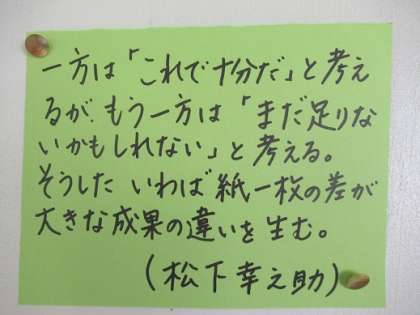 一方は「これで十分だ」と考え
るが、もう一方は「まだ足りな
いかもしれない」と考える。
そうした いわば紙一枚の差が
大きな成果の違いを生む。
(松下幸之助)